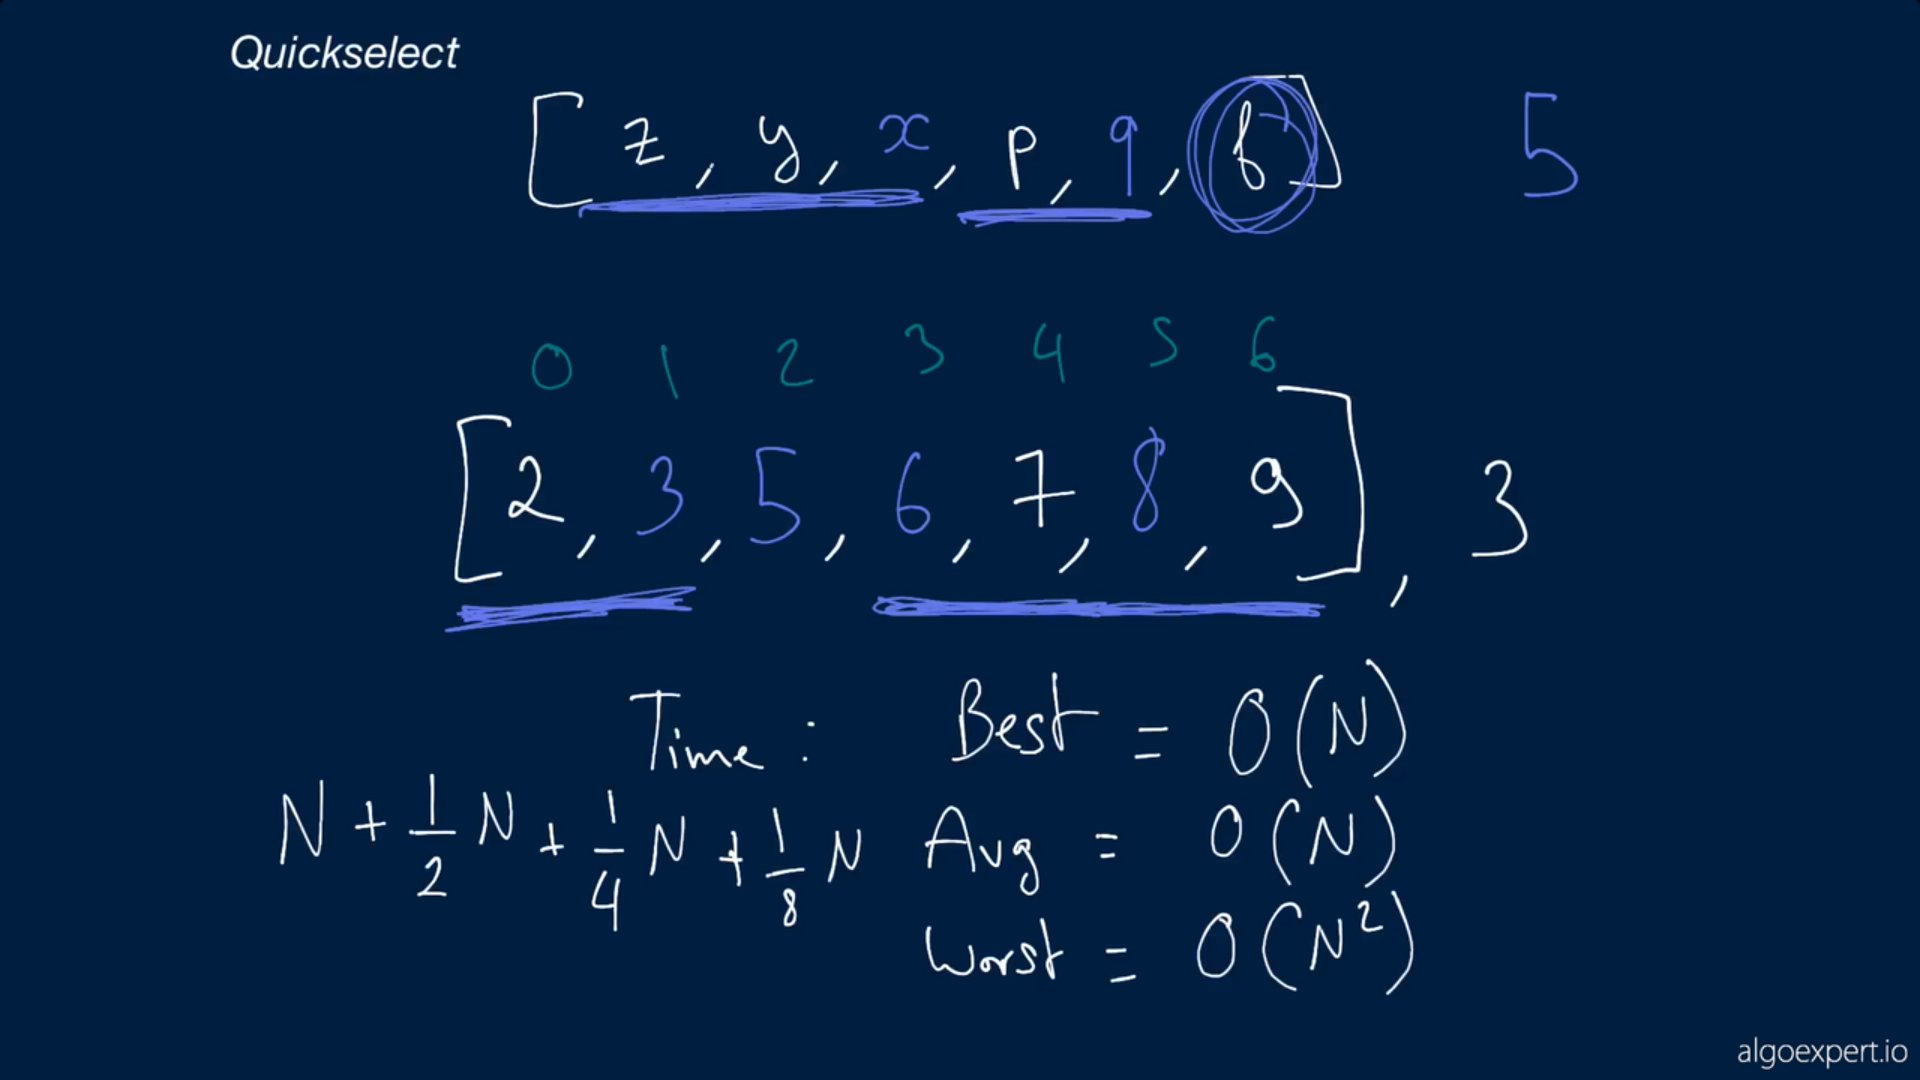 Quickselect
[ z, y, x, p, q, f ] 5
0 1 2 3 4 5 6
[ 2, 3, 5, 6, 7, 8, 9 ], 3
Time : Best = O(N)
N + 1/2 N + 1/4 N + 1/8 N Avg = O(N)
Worst = O(N²)
algoexpert.io